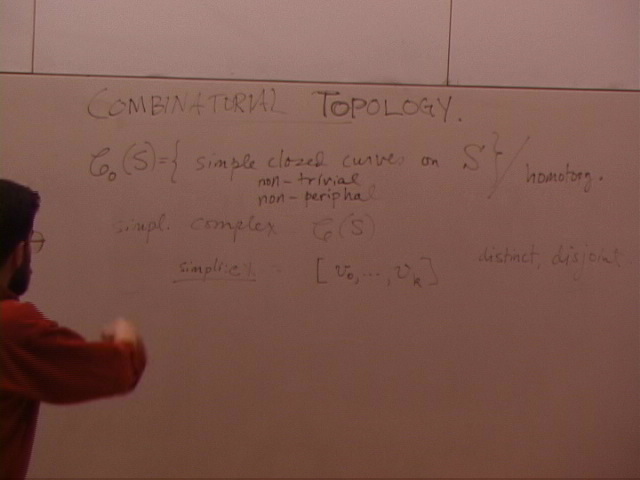 COMBINATORIAL TOPOLOGY.
𝒞₀(S) = { simple closed curves on S } / homotopy.
non-trivial
non-periphal
simpl. complex 𝒞(S)
[v₀, ..., vₖ] distinct, disjoint